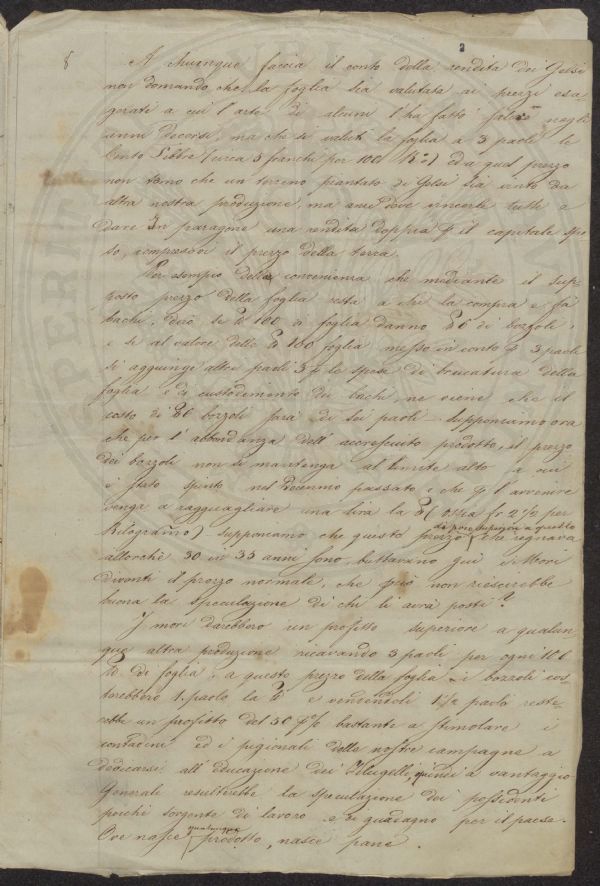 8
2
A chiunque faccia il conto della rendita dei Gelsi
non domando che la foglia sia valutata ai prezzi esa-
gerati a cui l'arte di alcuni l'ha fatto salire negli
anni decorsi, ma che si valuti la foglia a 3 paoli le
Cento Libbre (circa 5 franchi per 100 ) ed a quel prezzo
non temo che un terreno piantato di Gelsi sia vinto da
altra nostra produzione, ma anzi deve vincerle tutte e
dare in paragone una rendita doppia p il capitale spe-
so, compresovi il prezzo della terra.
Per esempio della convenienza che mediante il sup-
posto prezzo della foglia resta a chi la compra e fa
bachi, dirò se 100 di foglia danno 6 di bozzoli,
e se al valore delle 100 foglia messo in conto p 3 paoli
si aggiungi altri paoli 3 p le spese di brucatura della
foglia e di custodimento dei bachi, ne viene che il
costo di 6 bozzoli sarà di sei paoli - supponiamo ora
che per l'abbondanza dell'accresciuto prodotto, il prezzo
dei bozzoli non si mantenga al limite alto a cui
è stato spinto nel Decennio passato e che p l'avvenire
venga a ragguagliare una lira la (ossia fr 2 1/2 per
Kilogramo) supponiamo che questo prezzo che regnava
allorchè 30 in 35 anni sono, buttavano qui i Mori
diventi il prezzo normale, che può non riescirebbe
buona la speculazione di chi li avrà posti?
I mori darebbero un profitto superiore a qualun-
que altra produzione ricavando 3 paoli per ogni 100
di foglia, a questo prezzo della foglia i bozzoli cos-
terebbero 1. paolo la e vendendoli 1 1/2 paolo reste-
rebbe un profitto del 50 p% bastante a stimolare i
contadini ed i pigionali delle nostre campagne a
dedicarsi all'educazione dei Filugelli, quindi a vantaggio
Generale resulterebbe la speculazione dei possidenti
perchè sorgente di lavoro e di guadagno per il paese.
Ove nasce qualunque prodotto, nasce pane.